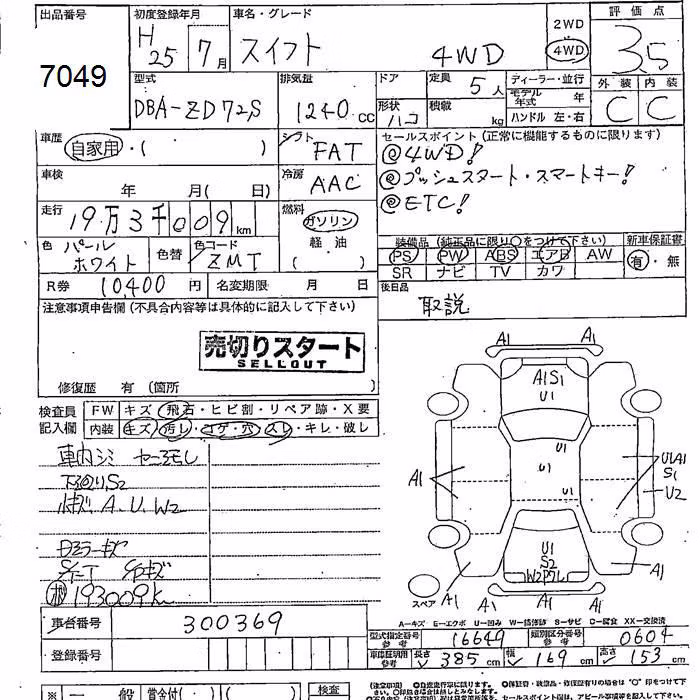 出品番号 初度登録年月 車名・グレード 2WD 評価点
7049 H25年7月 スイフト 4WD 4WD 3.5
外装 内装
C C
型式 排気量 ドア 定員 5人 ディーラー・並行
DBA-ZD72S 1240cc 形状 ハコ 積載 kg モデル年式 年
ハンドル 左・右
車歴 自家用・( ) シフト FAT
セールスポイント(正常に機能するものに限ります)
@4WD!
@プッシュスタート・スマートキー!
@ETC!
車検 年 月( 日) 冷房 AAC
走行 19万3千009km 燃料 ガソリン
軽油
( )
色 パールホワイト 色替 色コード ZMT
装備品(純正品に限り○をつけて下さい) 新車保証書
PS PW ABS エアB AW 有・無
SR ナビ TV カワ
R券 10,400円 名変期限 月 日
後日品
取説
注意事項申告欄(不具合内容等は具体的に記入して下さい)
売切りスタート
SELLOUT
修復歴 有(箇所 )
検査員 FW キズ・飛石・ヒビ割・リペア跡・X要
記入欄 内装 キズ・汚レ・コゲ・穴・スレ・キレ・破レ
車内シミ
下回りS2
A.U.W2
193009k
A1 A1
A1S1
U1
U1
U1
U1
A1
U1A1
S1
U2
U1
S2
W2
A1 A1 A1 A1
スペア
A-キズ E-エクボ U-凹み W-補修跡 S-サビ C-腐食 XX-交換済
車台番号 300369
型式指定番号 参考 16649 類別区分番号 参考 0604
登録番号
車庫証明用 参考 長さ 385cm 幅 169cm 高さ 153cm
※ 一般 賞金付( )( ) 検査